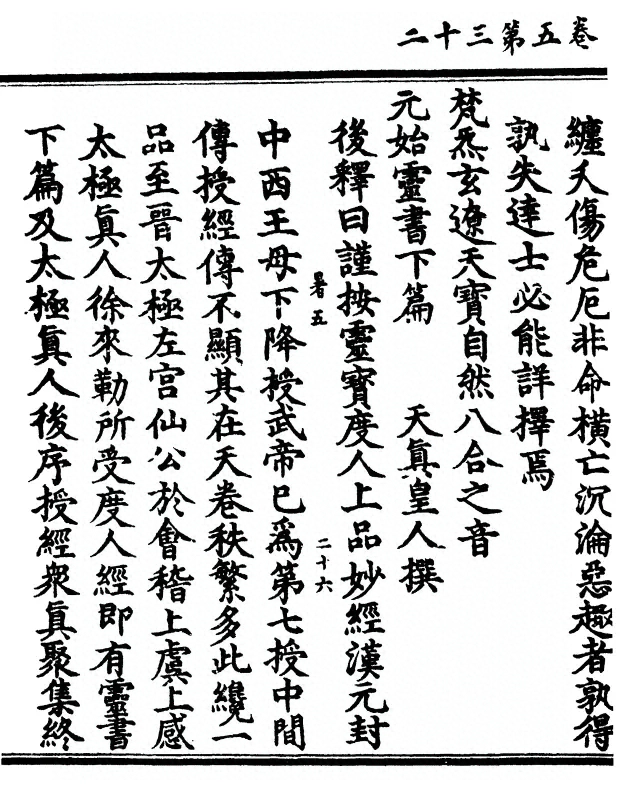 卷五第三十二
纏夭傷危厄非命橫亡沉淪惡趣者孰得
孰失達士必能詳擇焉
梵炁玄遼天寶自然八合之音
元始靈書下篇　天真皇人撰
後釋曰謹按靈寶度人上品妙經漢元封
暑五　二十六
中西王母下降授武帝已爲第七授中間
傳授經傳不顯其在天卷秩繁多此纔一
品至晉太極左宮仙公於會稽上虞上感
太極眞人徐來勒所受度人經即有靈書
下篇及太極眞人後序授經衆眞聚集終